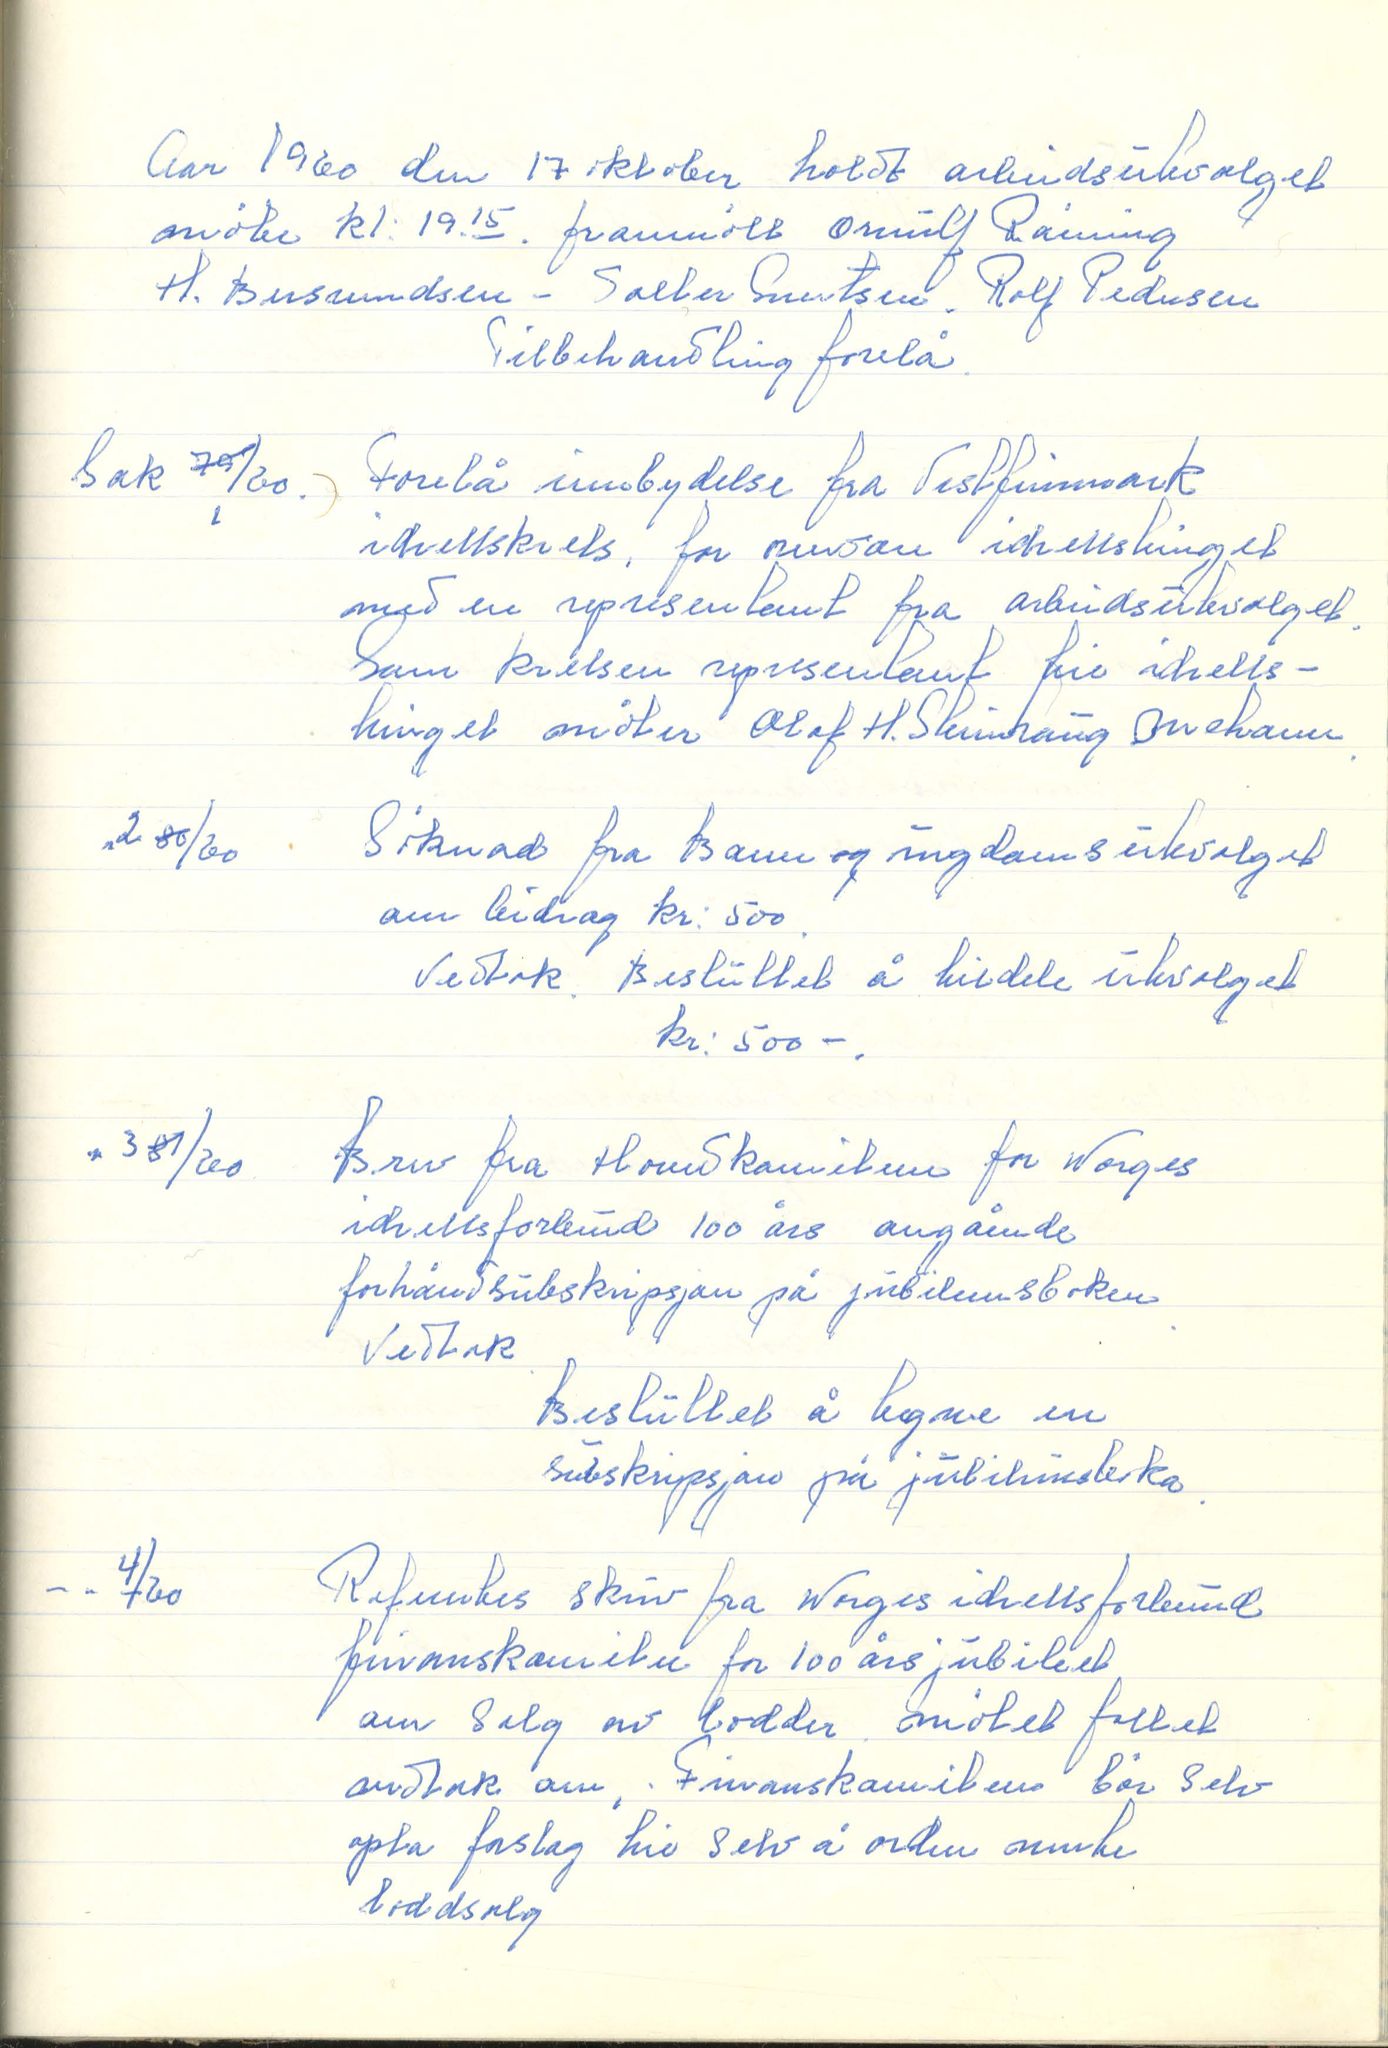 Aar 1960 den 17 oktober holdt arbeidsutvalget
møte kl: 19.15. frammött Ørnulf Råining
H. Busmundsen - Salber Knutsen. Rolf Pedersen
Tilbehandling forelå.
Sak 79/60. 1 Forelå innbydelse fra Vestfinnmark
idrettskrets, for overvære idrettstinget
med en representant fra arbeidsutvalget.
Som kretsen representant til idretts-
tinget møter Olaf H. Steinhaug Mehamn.
" 2 80/60 Söknad fra Barn og ungdomsutvalget
om bidrag kr: 500.
Vedtak. Besluttet å tildele utvalget
kr: 500 -.
" 3 81/60 Brev fra Hovedkomiteen for Norges
idrettsforbund 100 års angående
forhåndsubskripsjon på jubileumsboken.
Vedtak
Besluttet å tegne en
subskripsjon på jubileumsboka.
- " - 4/60 Referertes skriv fra Norges idrettsforbund
finanskomiteen for 100 års jubileet
om salg av lodder. møtet fattet
vedtak om, Finanskomiteen bör selv
opta forslag til selv å ordne
loddsalg